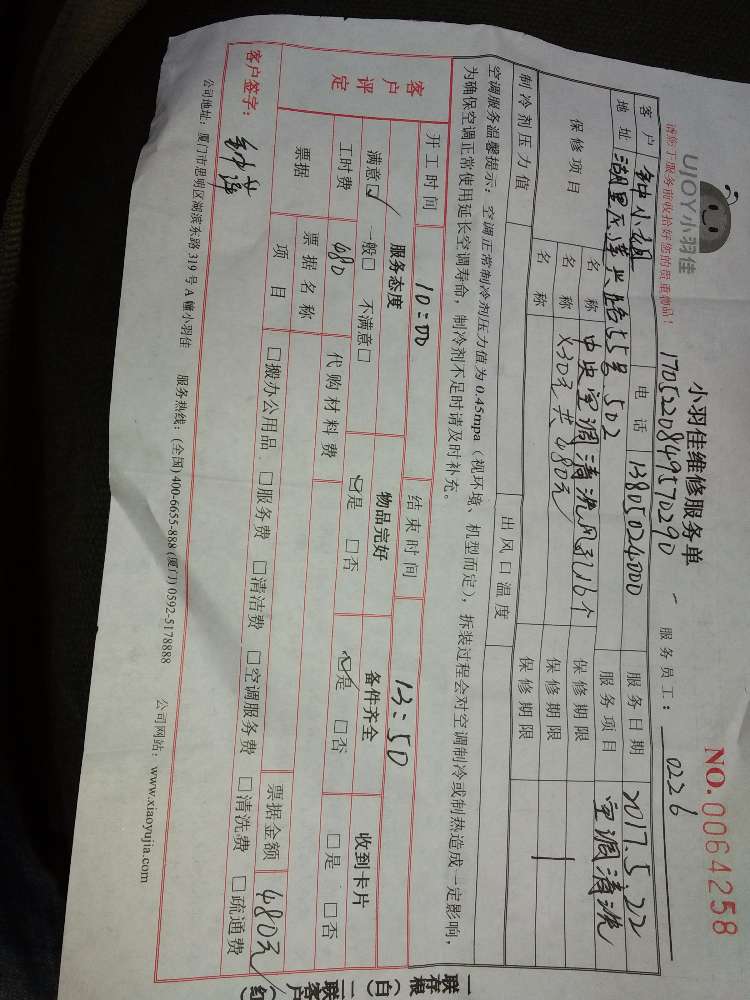 UJOY小羽佳
请您于服务前收拾好您的贵重物品!
小羽佳维修服务单
NO.0064258
17052208495 70290
服务员工: 0226
客户 钟小姐 电话 13805024000 服务日期 2017.5.22
地址 湖里区 55号502 服务项目 空调清洗
保修项目 名称 中央空调清洗风口16个 保修期限
名称 X30元 共480元 保修期限
名称 保修期限
制冷剂压力值 出风口温度
空调服务温馨提示:空调正常制冷剂压力值为0.45mpa(视环境、机型而定),拆装过程会对空调制冷或制热造成一定影响,
为确保空调正常使用延长空调寿命,制冷剂不足时请及时补充。
开工时间 10:00 结束时间 13:50
客户评定 服务态度 物品完好 备件齐全 收到卡片
满意☑ 一般□ 不满意□ ☑是 □否 ☑是 □否 □是 □否
工时费 480 代购材料费
票据 票据名称 票据金额 480元
项目 □搬办公用品 □服务费 □清洁费 □空调服务费 □清洗费 □疏通费
客户签字: 钟萍
公司地址:厦门市思明区湖滨东路319号A幢小羽佳 服务热线:(全国)400-6655-888 (厦门)0592-5178888 公司网站:www.xiaoyujia.com
一联存根(白) 二联客户(红)